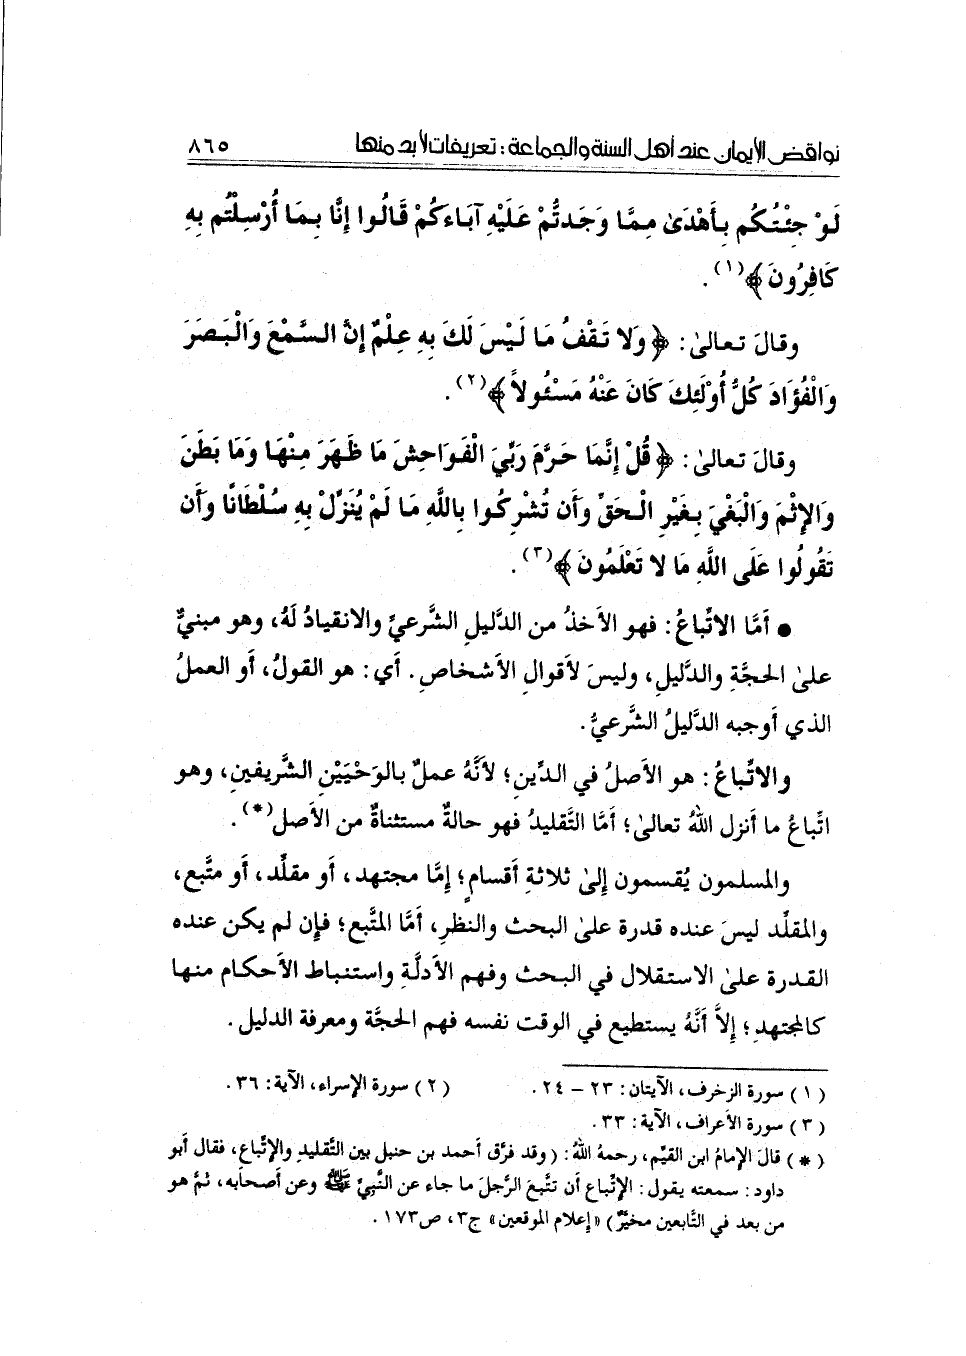 نواقض الإيمان عند أهل السنة والجماعة : تعريفات لابد منها ٨٦٥
لَوْ جِئْتُكُم بِأَهْدَىٰ مِمَّا وَجَدتُّمْ عَلَيْهِ آبَاءَكُمْ قَالُوا إِنَّا بِمَا أُرْسِلْتُم بِهِ
كَافِرُونَ﴾(١).
وقالَ تعالىٰ: ﴿وَلا تَقْفُ مَا لَيْسَ لَكَ بِهِ عِلْمٌ إِنَّ السَّمْعَ وَالْبَصَرَ
وَالْفُؤَادَ كُلُّ أُوْلَئِكَ كَانَ عَنْهُ مَسْئُولاً﴾(٢).
وقالَ تعالىٰ: ﴿قُلْ إِنَّمَا حَرَّمَ رَبِّيَ الْفَوَاحِشَ مَا ظَهَرَ مِنْهَا وَمَا بَطَنَ
وَالإِثْمَ وَالْبَغْيَ بِغَيْرِ الْحَقِّ وَأَن تُشْرِكُوا بِاللَّهِ مَا لَمْ يُنَزِّلْ بِهِ سُلْطَانًا وَأَن
تَقُولُوا عَلَى اللَّهِ مَا لا تَعْلَمُونَ﴾(٣).
● أمَّا الاتِّباعُ: فهو الأخذُ من الدَّليلِ الشَّرعيِّ والانقيادُ لَهُ، وهو مبنيٌّ
علىٰ الحجَّةِ والدَّليلِ، وليسَ لأقوالِ الأشخاصِ. أي: هو القولُ، أو العملُ
الذي أوجبه الدَّليلُ الشَّرعيُّ.
والاتِّباعُ: هو الأصلُ في الدِّينِ؛ لأنَّهُ عملٌ بالوَحْيَيْنِ الشَّريفينِ، وهو
اتِّباعُ ما أنزل اللهُ تعالىٰ؛ أمَّا التَّقليدُ فهو حالةٌ مستثناةٌ من الأصل(*).
والمسلمون يُقسمون إلىٰ ثلاثةِ أقسامٍ؛ إمَّا مجتهد، أو مقلِّد، أو متَّبع،
والمقلِّد ليسَ عنده قدرة علىٰ البحث والنظرِ، أمَّا المتَّبع؛ فإن لم يكن عنده
القدرة علىٰ الاستقلال في البحث وفهم الأدلَّةِ واستنباط الأحكام منها
كالمجتهدِ؛ إلاَّ أنَّهُ يستطيع في الوقت نفسه فهم الحجَّة ومعرفة الدليل.
(١) سورة الزخرف، الآيتان: ٢٣ – ٢٤. (٢) سورة الإسراء، الآية: ٣٦.
(٣) سورة الأعراف، الآية: ٣٣.
(*) قالَ الإمامُ ابن القيِّم، رحمهُ اللهُ: (وقد فرَّق أحمد بن حنبل بين التَّقليدِ والإتِّباعِ، فقال أبو
داود: سمعته يقول: الإتِّباع أن تتَّبعَ الرَّجلَ ما جاء عن النَّبيِّ ﷺ وعن أصحابه، ثمَّ هو
من بعد في التَّابعين مخيَّرٌ) «إعلام الموقعين» ج٣، ص١٧٣.